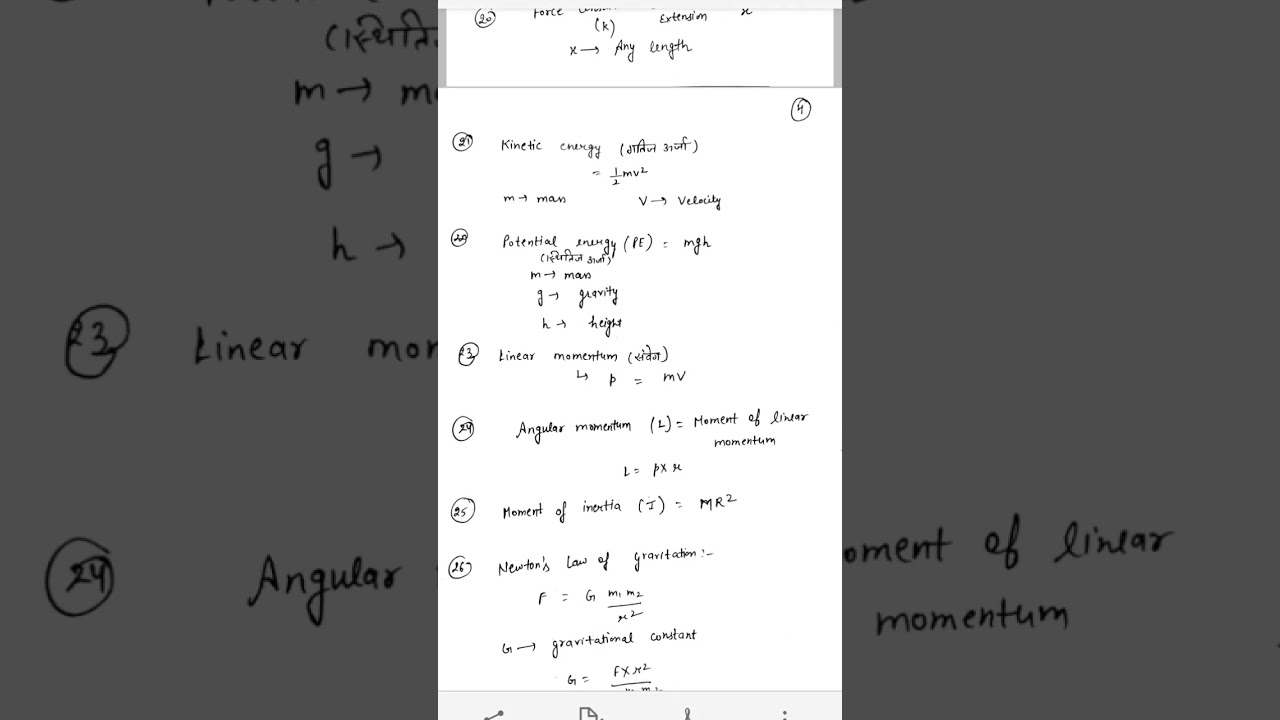 20 Force
(K) Extension x
x → Any length
4
21 Kinetic energy (गतिज ऊर्जा)
= 1/2 mv²
m → mass V → Velocity
Potential energy (PE) = mgh
(स्थितिज ऊर्जा)
m → mass
g → gravity
h → height
23 Linear momentum (संवेग)
↳ p = mV
24 Angular momentum (L) = Moment of linear
momentum
L = p×r
25 Moment of inertia (I) = MR²
26 Newton's Law of gravitation :-
F = G m₁ m₂ / r²
G → gravitational constant
G = F×r² / m₁ m₂